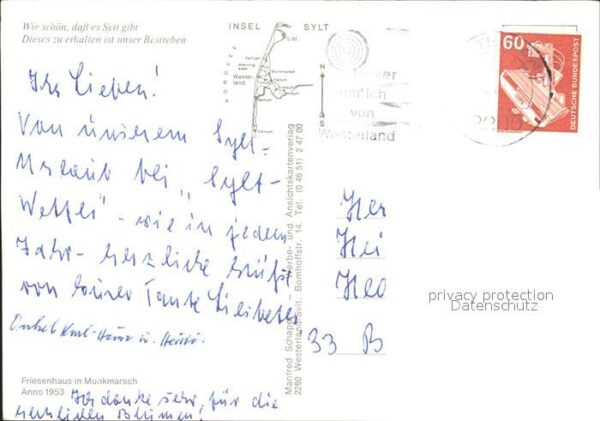 Wie schön, daß es Sylt gibt
Dieses zu erhalten ist unser Bestreben
INSEL SYLT
NORDSEE
List
Kampen
Westerland
Munkmarsch
Keitum
N
S
von
Westerland
60
DEUTSCHE BUNDESPOST
2280
Ihr Lieben!
Von unserem Sylt-
Urlaub bei „Sylt-
Wetter" - wie in jedem
Jahr - herzliche Grüße
von Eurer Tante Liesbeth,
Onkel Karl-Heinz u.
Manfred Schaper — Werbe- und Ansichtskartenverlag
2280 Westerland/Sylt. Bomhoffstr. 14. Tel. (0 46 51) 2 47 00
Her
Hei
Hed
33 B
privacy protection
Datenschutz
Friesenhaus in Munkmarsch
Anno 1953
Ich danke sehr, für die
herzlichen Blumen!